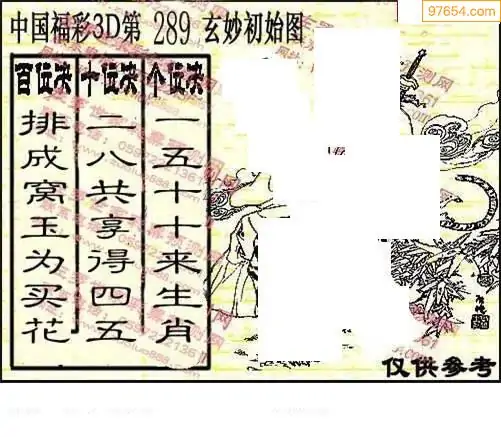 97654.com
中国福彩3D第 289 玄妙初始图
百位决 十位决 个位决
排成窝玉为买花
二八共享得四五
一五十十来生肖
仅供参考